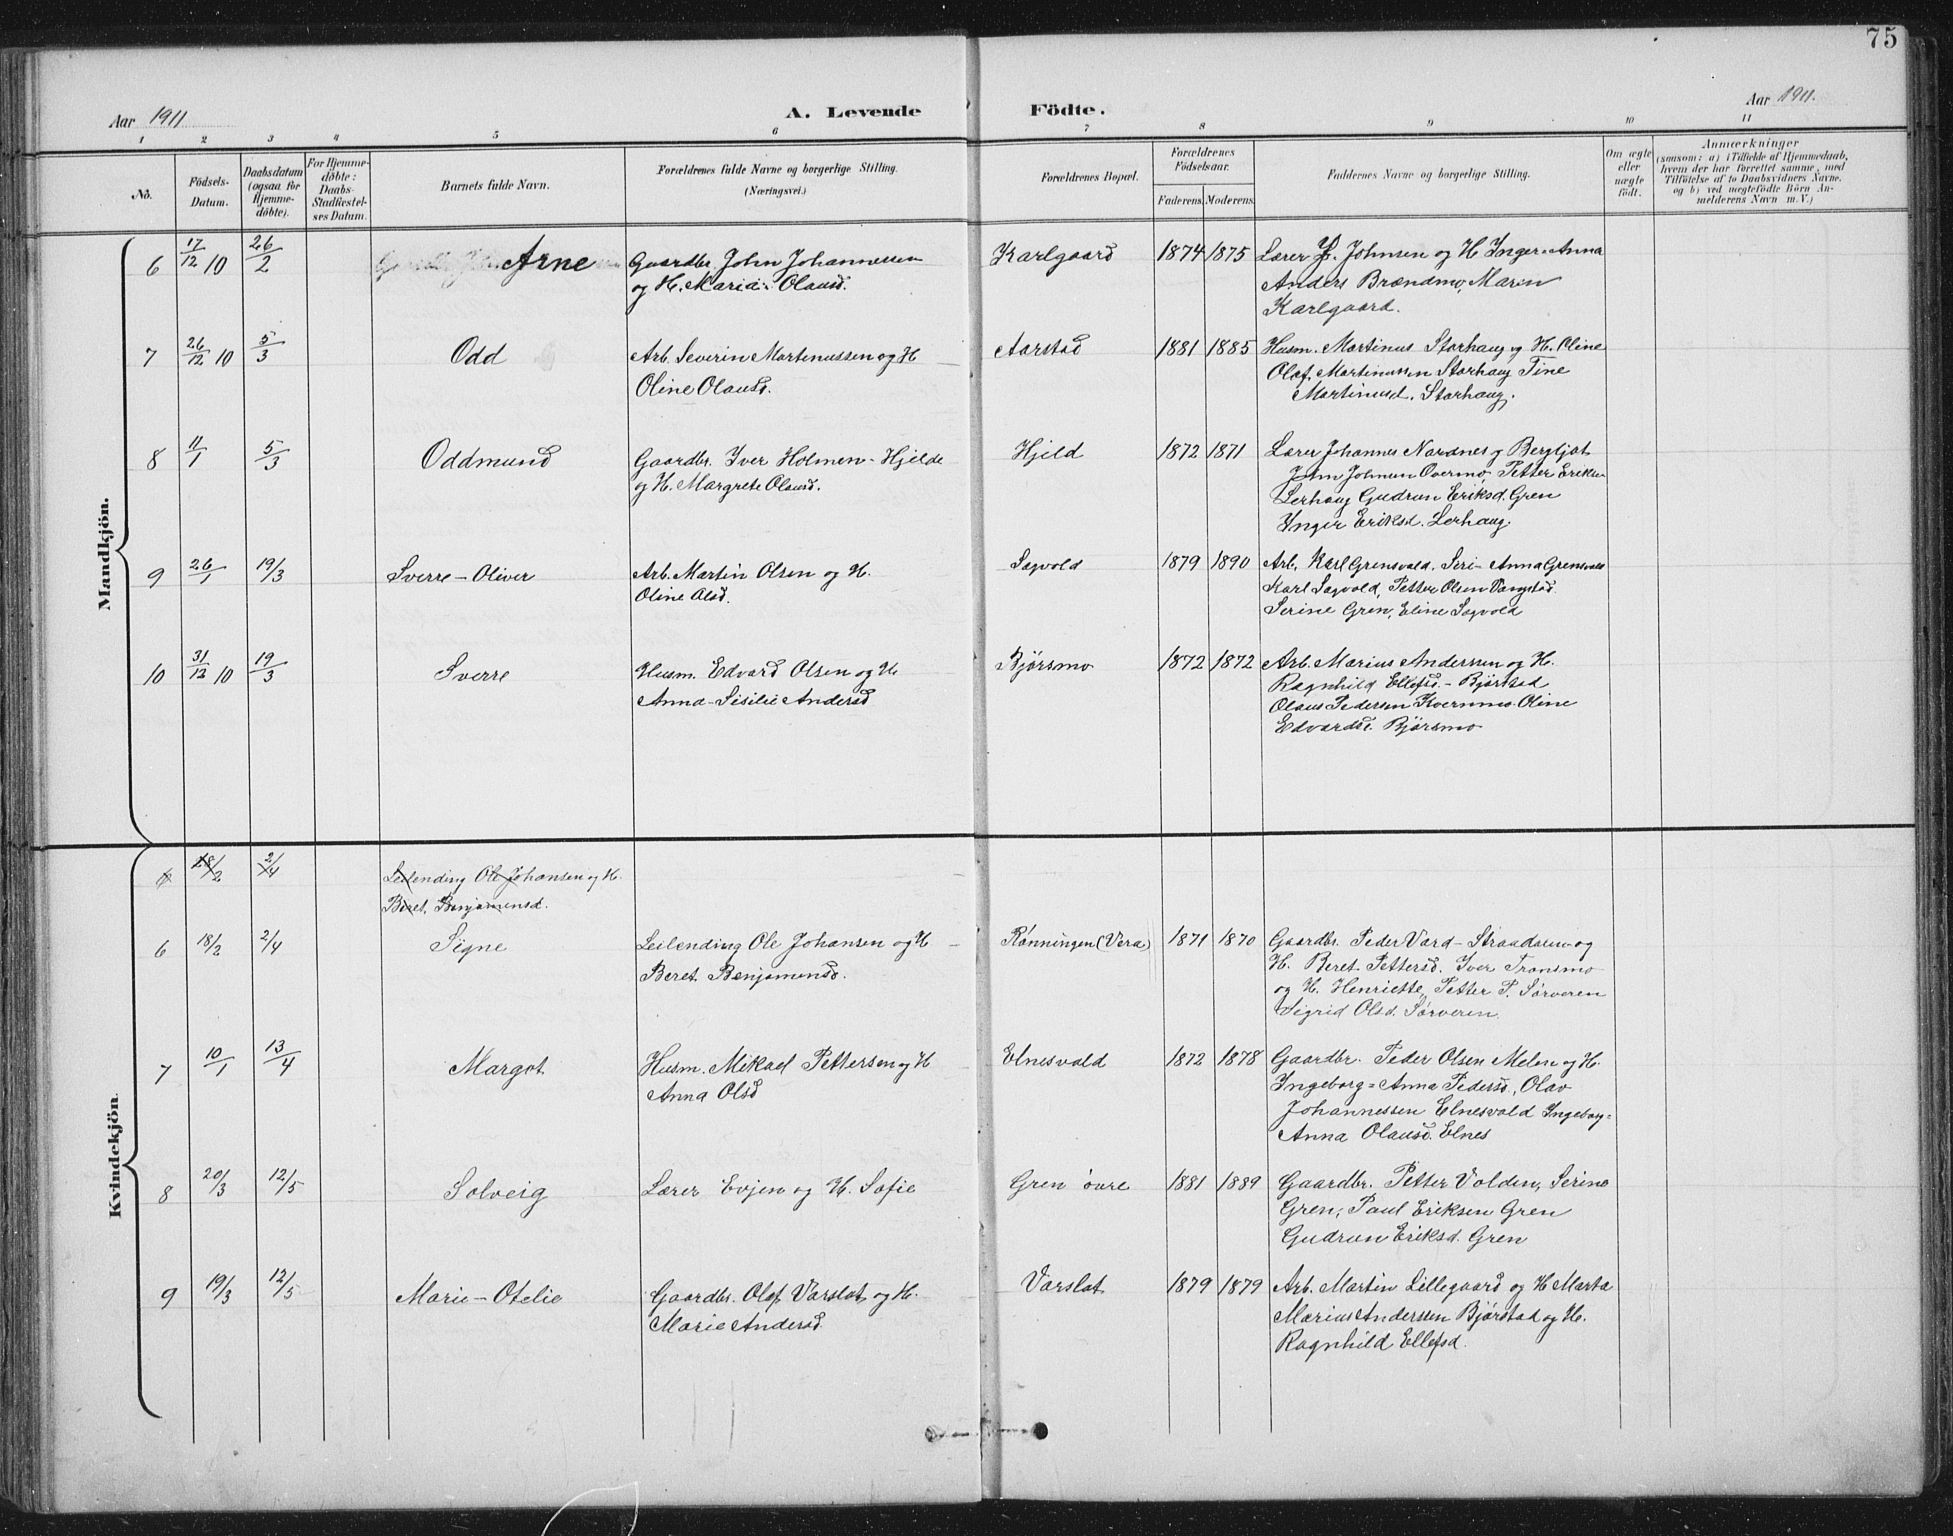 75
Aar 1911
A. Levende
Födte.
Aar 1911.
1 2 3 4 5 6 7 8 9 10 11
No.
Födsels-
Datum.
Daabsdatum
(ogsaa for
Hjemme-
döbte).
For Hjemme-
döbte:
Daabs-
Stadfæstel-
ses Datum.
Barnets fulde Navn.
Forældrenes fulde Navne og borgerlige Stilling.
(Næringsvei.)
Forældrenes Bopæl.
Forældrenes
Födselsaar.
Faderens. Moderens.
Faddernes Navne og borgerlige Stilling.
Om ægte
eller
uægte
födt.
Anmærkninger
(saasom: a) i Tilfælde af Hjemmedaab,
hvem der har forrettet samme, med
Tilföielse af to Daabsvidners Navne,
og b) ved uægtefödte Börn An-
melderens Navn m. V.)
Mandkjön.
6 17/12 10 26/2 Arne Gaardbr. John Johannessen Karlgaard 1874 1875 Lærer Johnsen og H. Inger-Anna
og H. Maria Olausd. Anders Brændmo, Maren
Karlgaard.
7 26/12 10 5/3 Odd Arb. Severin Martinussen og H Aarstad 1881 1885 Husm. Martinus Storhaug og H. Oline
Oline Olausd. Olaf. Martinussen Storhaug Tine
Martinusd. Storhaug.
8 11/1 5/3 Oddmund Gaardbr. Iver Holmen-Hjelde Hjeld 1872 1871 Lærer Johannes Nordnes og Bergljot
og H. Margrete Olausd. John Johnsen Overmo, Petter Eriksen
Lerhaug Gudrun Eriksd. Gren
Inger Eriksd. Lerhaug.
9 26/1 19/3 Sverre-Oliver Arb. Martin Olsen og H. Sagvold 1879 1890 Arb. Karl Grensvald. Seri-Anna Grensvald
Oline Olsd. Karl Sagvold, Petter Olsen Vangstad
Serine Gren, Eline Sagvold
10 31/12 10 19/3 Sverre Husm. Edvard Olsen og H Bjørsmo 1872 1872 Arb. Marius Anderssen og H.
Anna-Sisilie Andersd Ragnhild Ellefsd.-Bjørstad
Olaus Pedersen Kvernmo. Oline
Edvardsd. Bjørsmo
Kvindekjön.
6 18/2 2/4 Leilending Ole Johansen og H.
Beret. Benjamensd.
6 18/2 2/4 Signe Leilending Ole Johansen og H Rønningen (Vera) 1871 1870 Gaardbr. Peder Vard-Straadaren og
Beret Benjamensd. H. Beret Pettersd. Iver Transmo
og H. Henriette, Petter P. Sørveren
Sigrid Olsd. Sørveren.
7 10/1 13/4 Margot Husm. Mikael Pettersen og H Elnesvald 1872 1878 Gaardbr. Peder Olsen Melen og H.
Anna Olsd Ingeborg-Anna Pedersd., Olav
Johannessen Elnesvald Ingeborg-
Anna Olausd. Elnes
8 20/3 12/5 Solveig Lærer Evjen og H. Sofie Gren øvre 1881 1889 Gaardbr. Petter Volden, Serine
Gren, Paul Eriksen Gren
Gudrun Eriksd. Gren
9 19/3 12/5 Marie-Otelie Gaardbr. Olaf Varslot og H. Varslot 1879 1879 Arb. Martin Lillegaard og H Marta
Marie Andersd. Marius Anderssen Bjørstad og H.
Ragnhild Ellefsd.